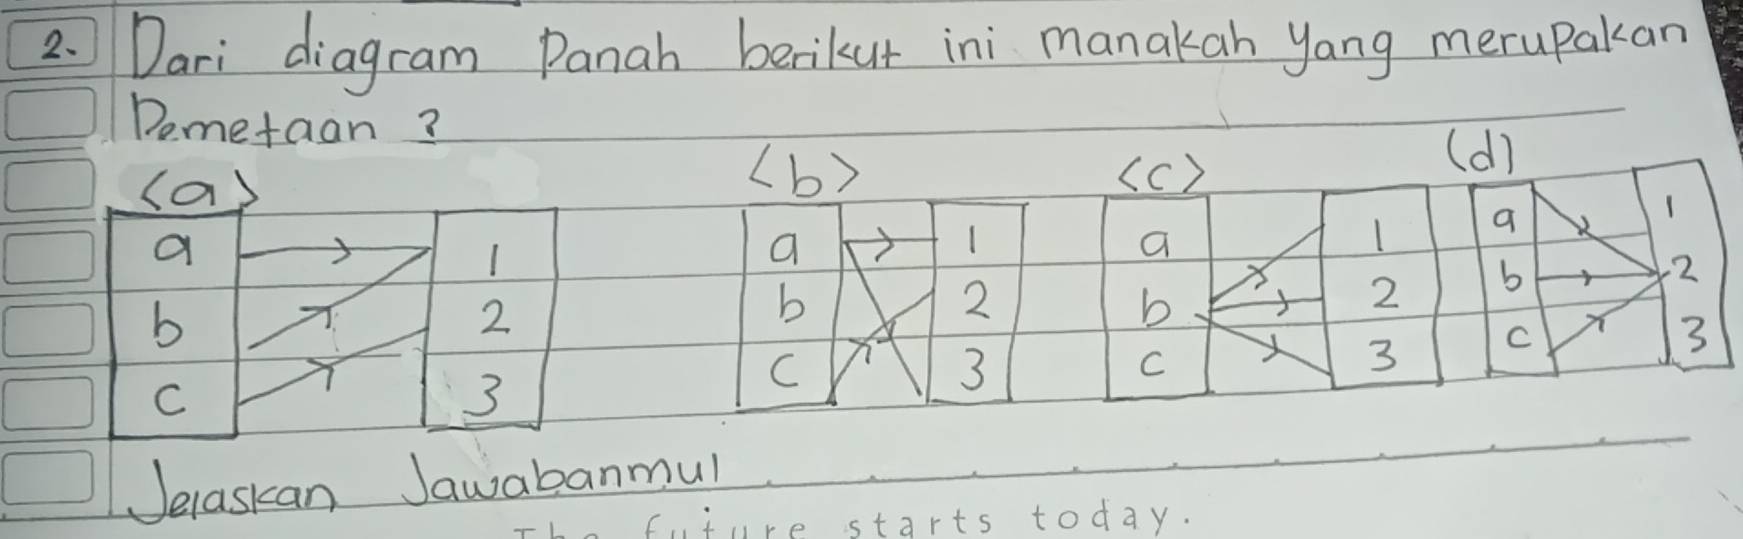 2. Dari diagram Panah berikut ini manakah yang merupakan
Pemetaan ?
<a> <b> <c> (d)
a 1 a 1 a 1 a 1
b 2 b 2 b 2 b 2
c 3 c 3 c 3 c 3
Jelaskan Jawabanmu!
The future starts today.